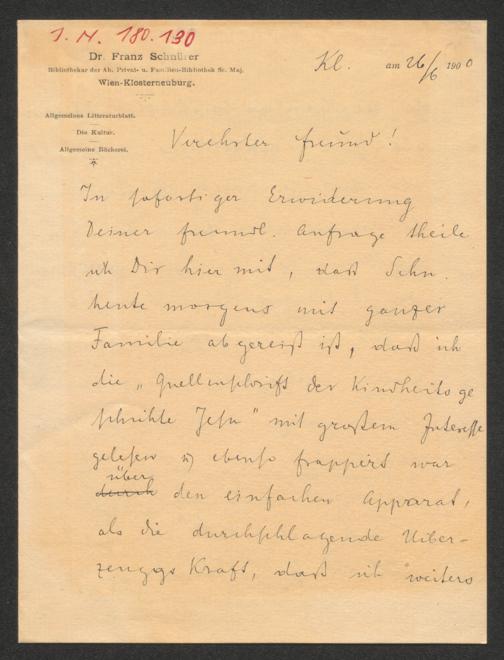 I. N. 180.130
Dr. Franz Schnürer
Bibliothekar der Ah. Privat- u. Familien-Bibliothek Sr. Maj.
Wien-Klosterneuburg.
Kl. am 26/6 1900
Allgemeines Litteraturblatt.
Die Kultur.
Allgemeine Bücherei.
Verehrter Freund!
In sofortiger Erwiderung
Deiner freundl. Anfrage theile
ich Dir hier mit, daß Schn.
heute morgens mit ganzer
Familie abgereist ist, daß ich
die „Quellenschrift der Kindheitsge
schichte Jesu“ mit großem Interesse
gelesen u) ebenso frappiert war
über
durch den einfachen Apparat,
als die durchschlagende Ueber-
zeuggs Kraft, daß ich weiters